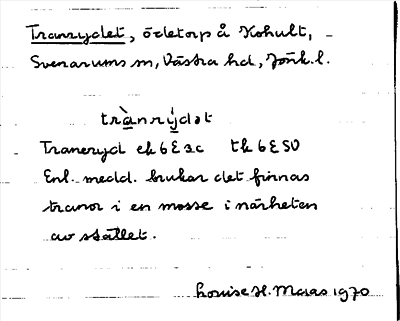 Tranrydet, ödetorp å Kohult,
Svenarums sn, Västra hd, Jönk. l.
trànrýdət
Traneryd ek 6E3c tk 6E SV
Enl. medd. brukar det finnas
tranor i en mosse i närheten
av stället.
Louise H. Maas 1970